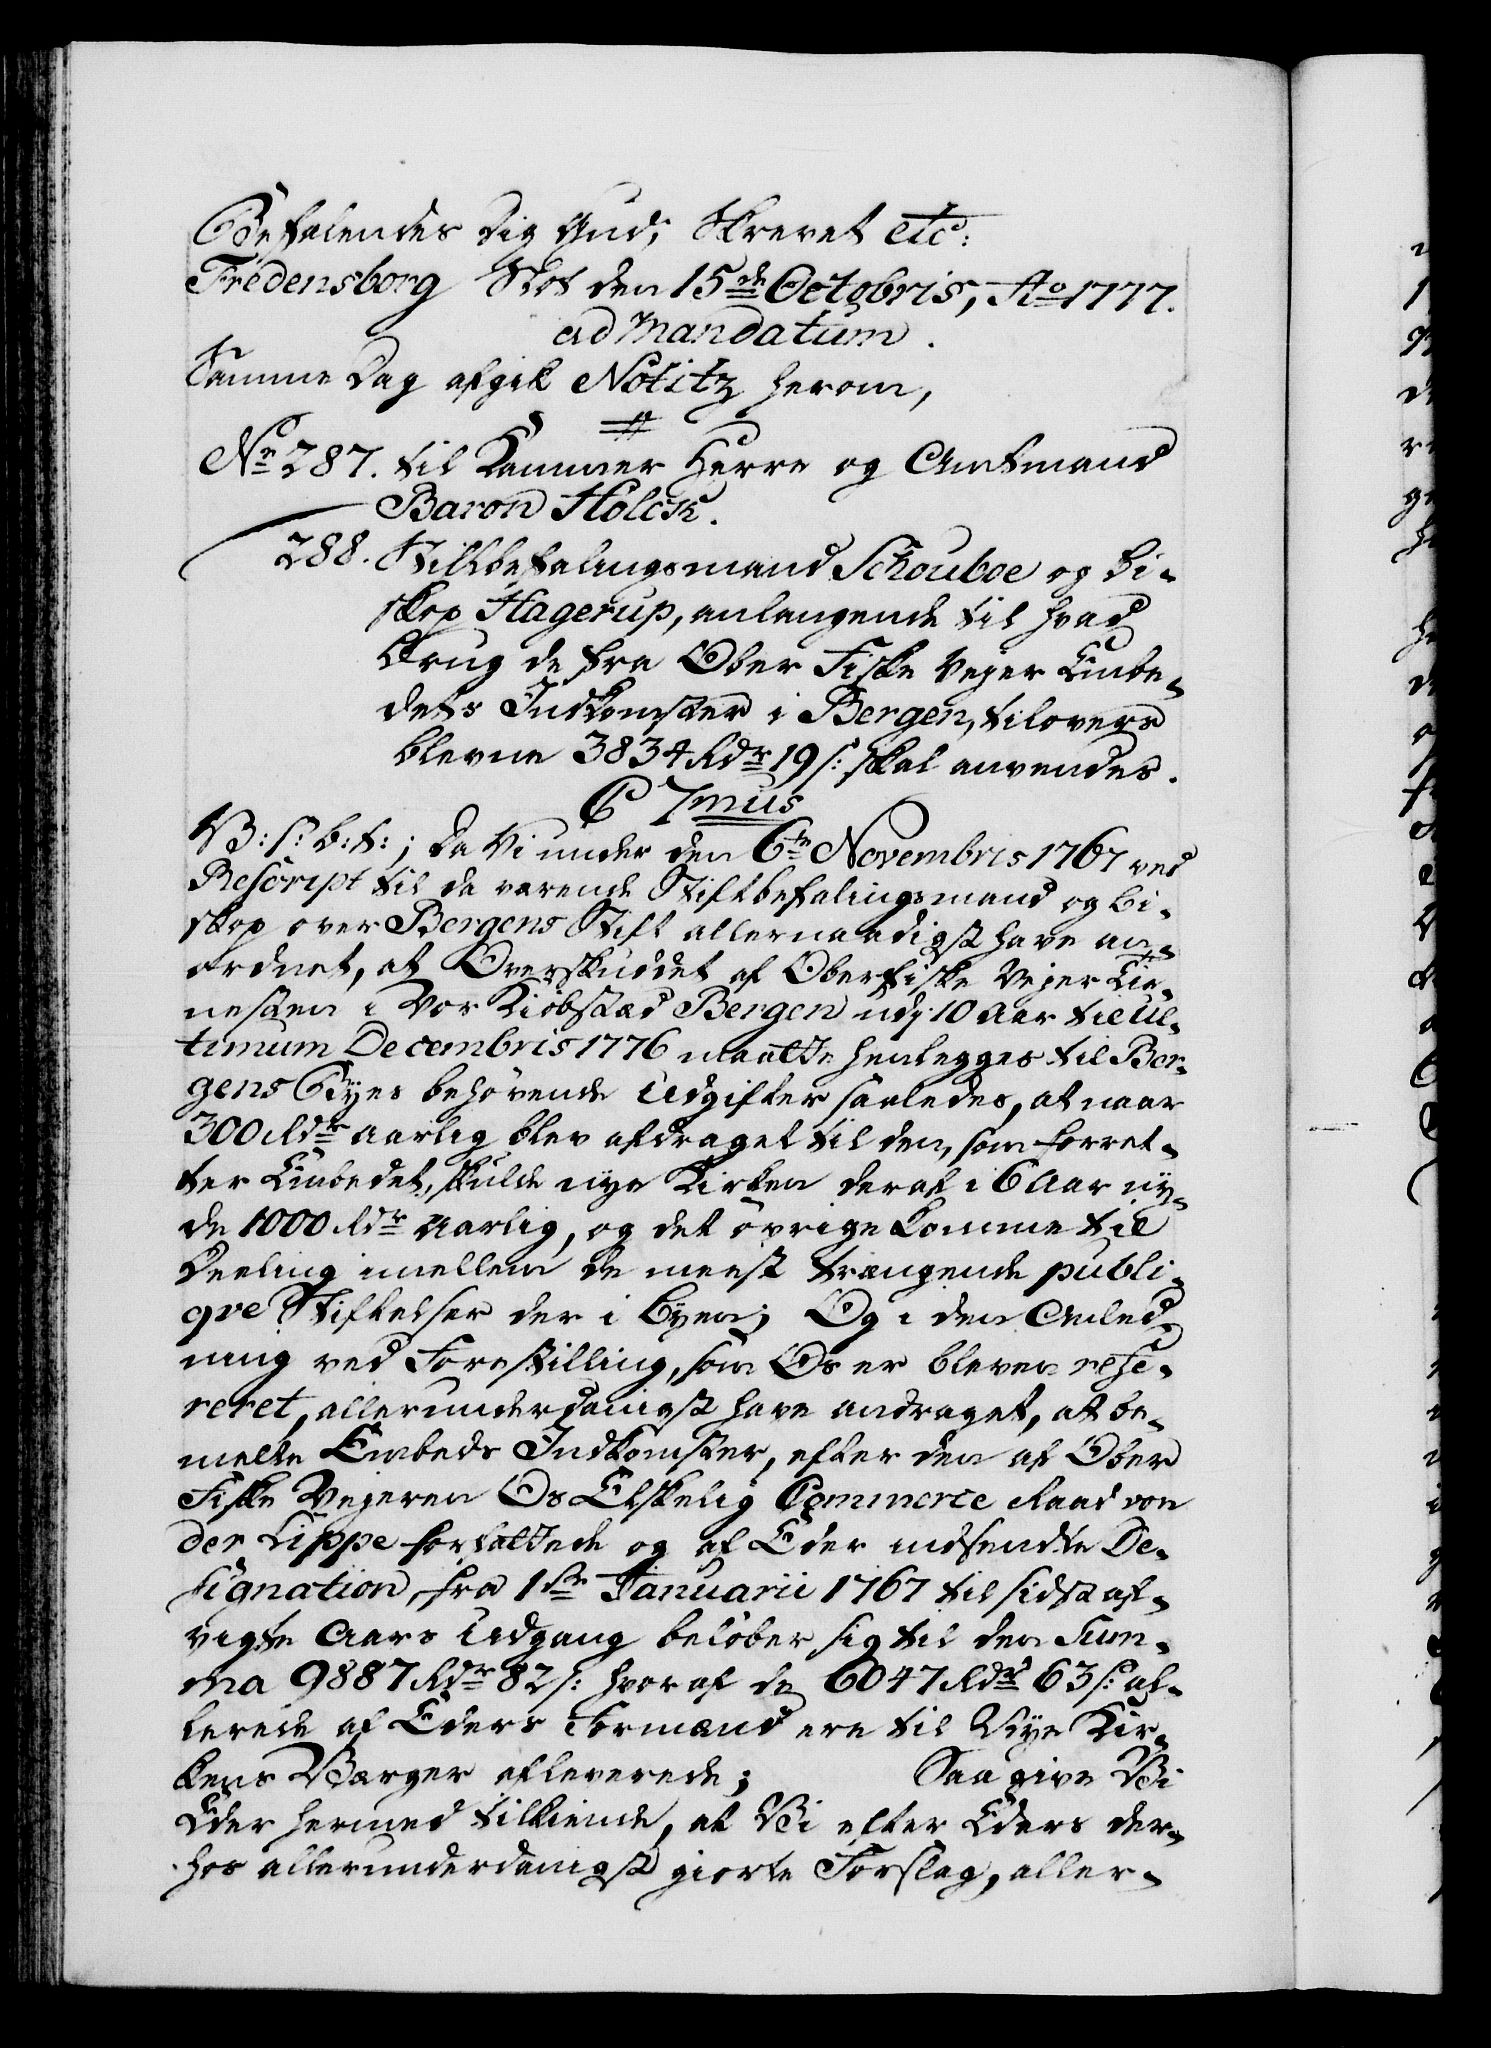 Befalendes dig Gud; Skrevet etc:
Fredensborg Slot den 15de Octobris, Ao 1777.
ad Mandatum.
Samme Dag afgik Notitz herom,
Nr 287. til Kammer Herre og Amtmand
Baron Holck.
288. Stiftbefalingsmand Schouboe og Bi-
skop Hagerup, anlangende til hvad
Brug de fra Ober Fiske Vejer Embe-
dets Indkomster i Bergen, tilovers
blevne 3834 Rdr 19 s: skal anvendes.
C 7mus
V: s: b: t:; Da Vi under den 6te Novembris 1767 ved
Rescript til da værende Stiftbefalingsmand og Bi-
skop over Bergens Stift allernaadigst have an-
ordnet, at Overskuddet af Oberfiske Vejer Tie-
nesten i Vor Kiøbstæd Bergen udj 10 Aar til Ul-
timum Decembris 1776 maatte henlegges til Ber-
gens Byes behøvende Udgifter saaledes, at naar
300 Rdr Aarlig blev afdraget til den, som forret-
ter Embedet, skulde nye Kirken deraf i 6 Aar ny-
de 1000 Rdr Aarlig, og det øvrige komme til
Deeling imellem de meest trængende publi-
qve Stiftelser der i Byen; Og i den Anled-
ning ved Forestilling, som Os er bleven refe-
reret, allerunderdanigst have andraget, at be-
melte Embeds Indkomster, efter den af Ober
Fiske Vejeren Os Elskelig Commerce Raad von
der Lippe forfattede og af Eder indsendte De-
signation, fra 1ste Januarii 1767 til sidst af-
vigte Aars Udgang beløber sig til den Sum-
ma 9887 Rdr 82 s: hvoraf de 6047 Rdr 63 s: al-
lerede af Eders Formænd ere til Nye Kir-
kens Værger afleverede; Saa give Vi
Eder hermed tilkiende, at Vi efter Eders der-
hos allerunderdanigst giorte Forslag, aller-